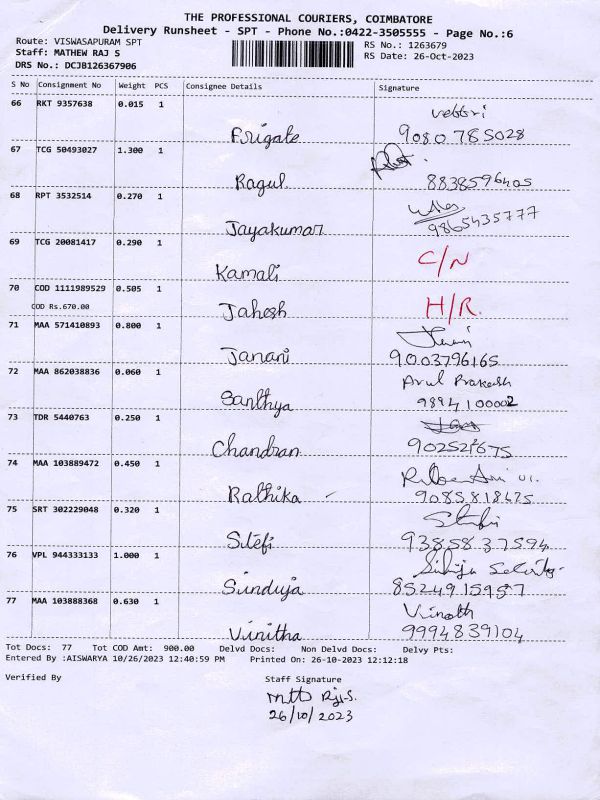 THE PROFESSIONAL COURIERS, COIMBATORE
Delivery Runsheet - SPT - Phone No.:0422-3505555 - Page No.:6
Route: VISWASAPURAM SPT
RS No.: 1263679
Staff: MATHEW RAJ S
RS Date: 26-Oct-2023
DRS No.: DCJB126367906
S No Consignment No Weight PCS Consignee Details Signature
66 RKT 9357638 0.015 1 Vettri
Frigate 9080785028
67 TCG 50493027 1.300 1
Ragul 8838596405
68 RPT 3532514 0.270 1
Jayakumar 9865435777
69 TCG 20081417 0.290 1 C/N
Kamali
70 COD 1111989529 0.505 1 H/R.
COD Rs.670.00 Jahesh
71 MAA 571410893 0.800 1
Janani 9003796165
72 MAA 862038836 0.060 1 Arul Prakash
Santhya 9894100002
73 TDR 5440763 0.250 1
Chandran
74 MAA 103889472 0.450 1
Rathika 9085818425
75 SRT 302229048 0.320 1
Stefi 9385837594
76 VPL 944333133 1.000 1
Sinduja 8524915957
77 MAA 103888368 0.630 1 Vinoth
Vinitha 9994839104
Tot Docs: 77 Tot COD Amt: 900.00 Delvd Docs: Non Delvd Docs: Delvy Pts:
Entered By :AISWARYA 10/26/2023 12:40:59 PM Printed On: 26-10-2023 12:12:18
Verified By Staff Signature
26/10/2023